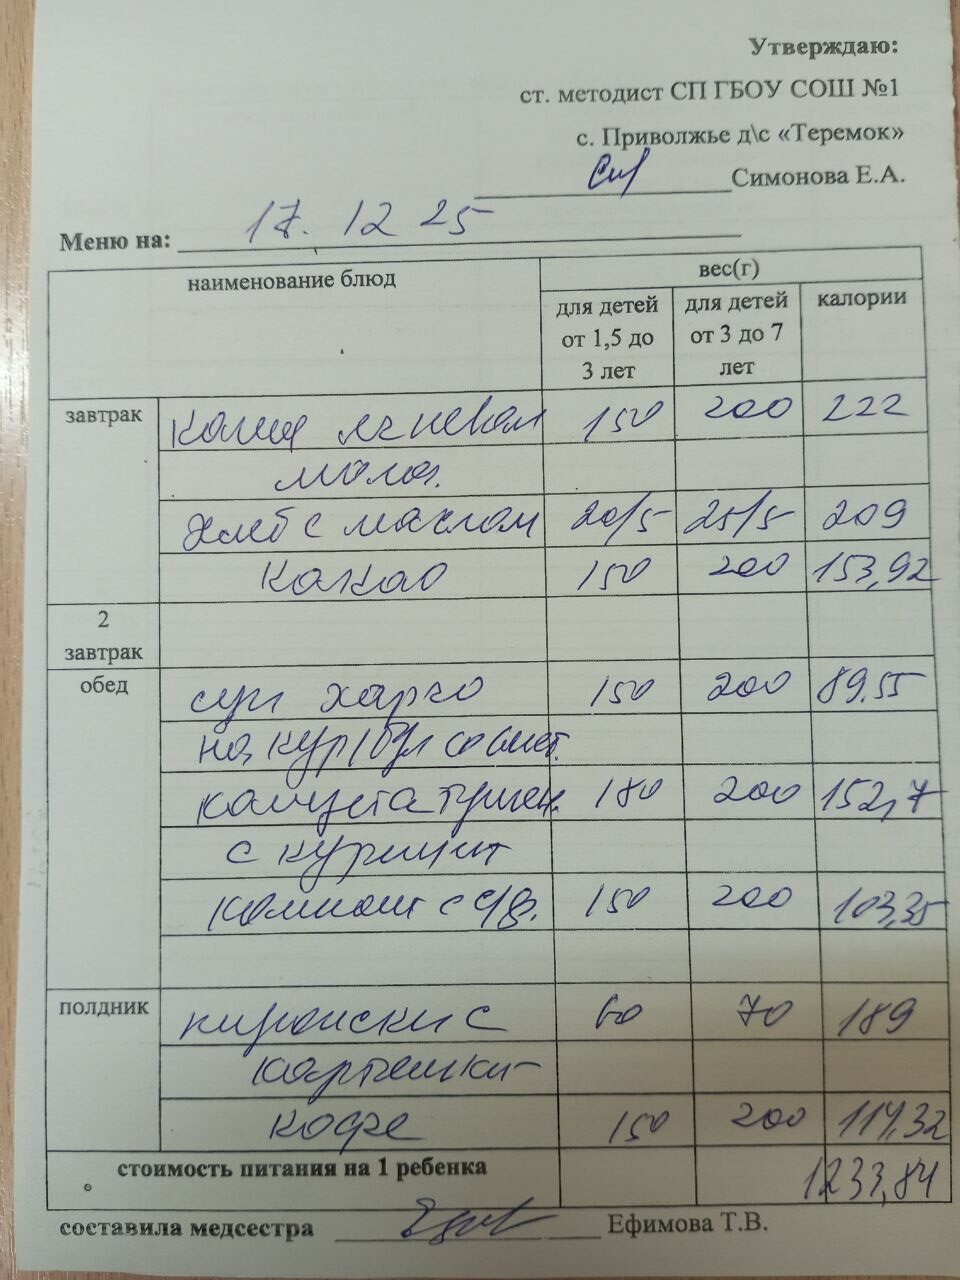 Утверждаю:
ст. методист СП ГБОУ СОШ №1
с. Приволжье д\с «Теремок»
Симонова Е.А.
Меню на: 17. 12 25
наименование блюд вес(г)
для детей от 1,5 до 3 лет для детей от 3 до 7 лет калории
завтрак каша ячневая 150 200 222
молоч.
хлеб с маслом 20/5 25/5 209
какао 150 200 153,92
2 завтрак
обед суп харчо 150 200 89,55
на кур/бул со смет.
капуста тушен. 180 200 152,7
с курицей
компот с с/ф. 150 200 103,35
полдник пирожки с 60 70 189
картошкой
кофе 150 200 114,32
стоимость питания на 1 ребенка 1233,84
составила медсестра Ефимова Т.В.